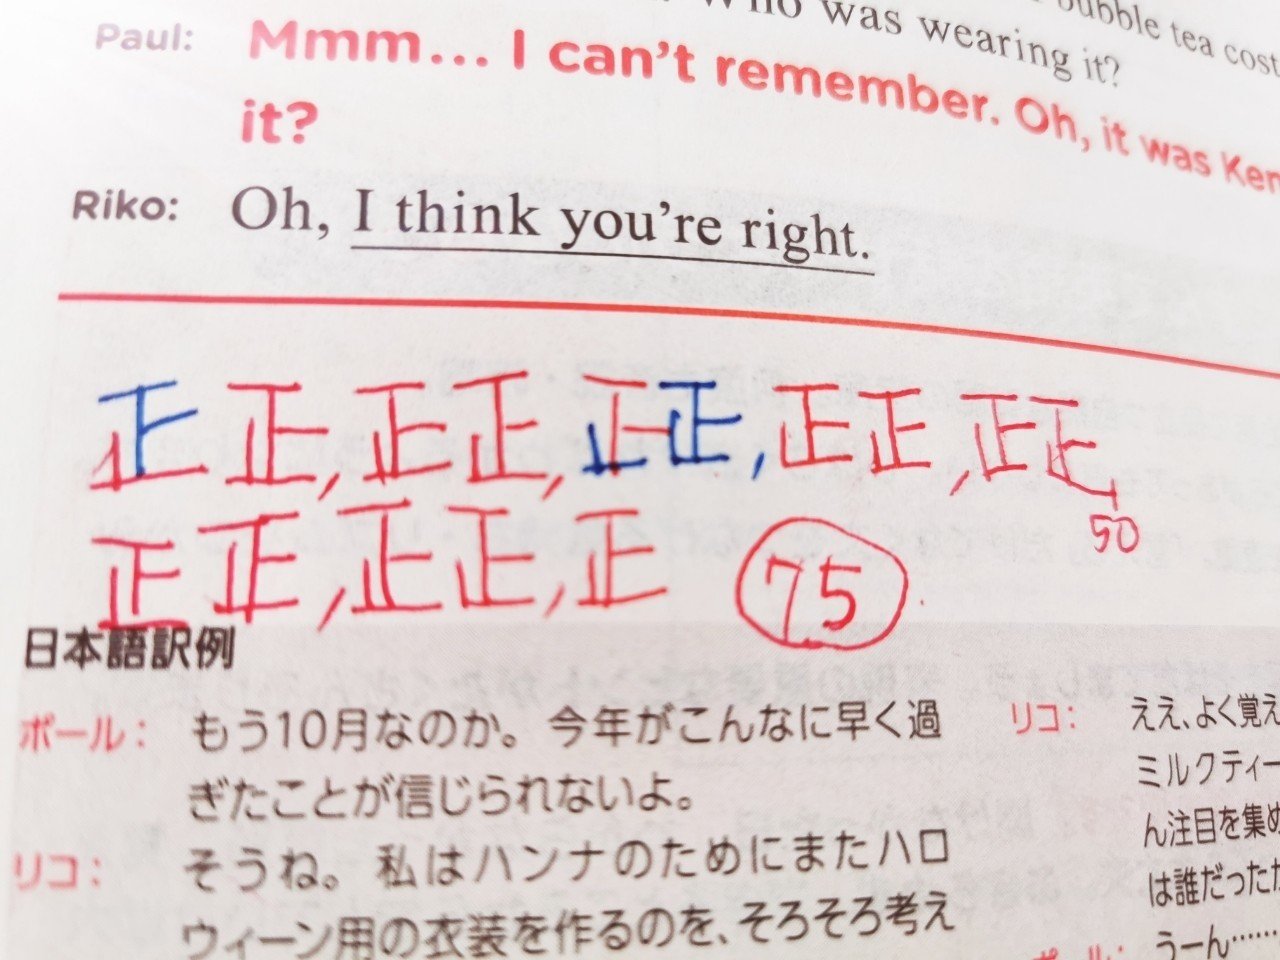 bubble tea cost
Who was wearing it?
Paul: Mmm... I can't remember. Oh, it was Ken
it?
Riko: Oh, I think you're right.
正 正, 正 正, 正 正, 正 正, 正 正
50
正 正, 正 正, 正 75
日本語訳例
ポール: もう10月なのか。今年がこんなに早く過
ぎたことが信じられないよ。
リコ: そうね。私はハンナのためにまたハロ
ウィーン用の衣装を作るのを、そろそろ考え
リコ: ええ、よく覚え
ミルクティー
ん注目を集め
は誰だったか
ポール: うーん……